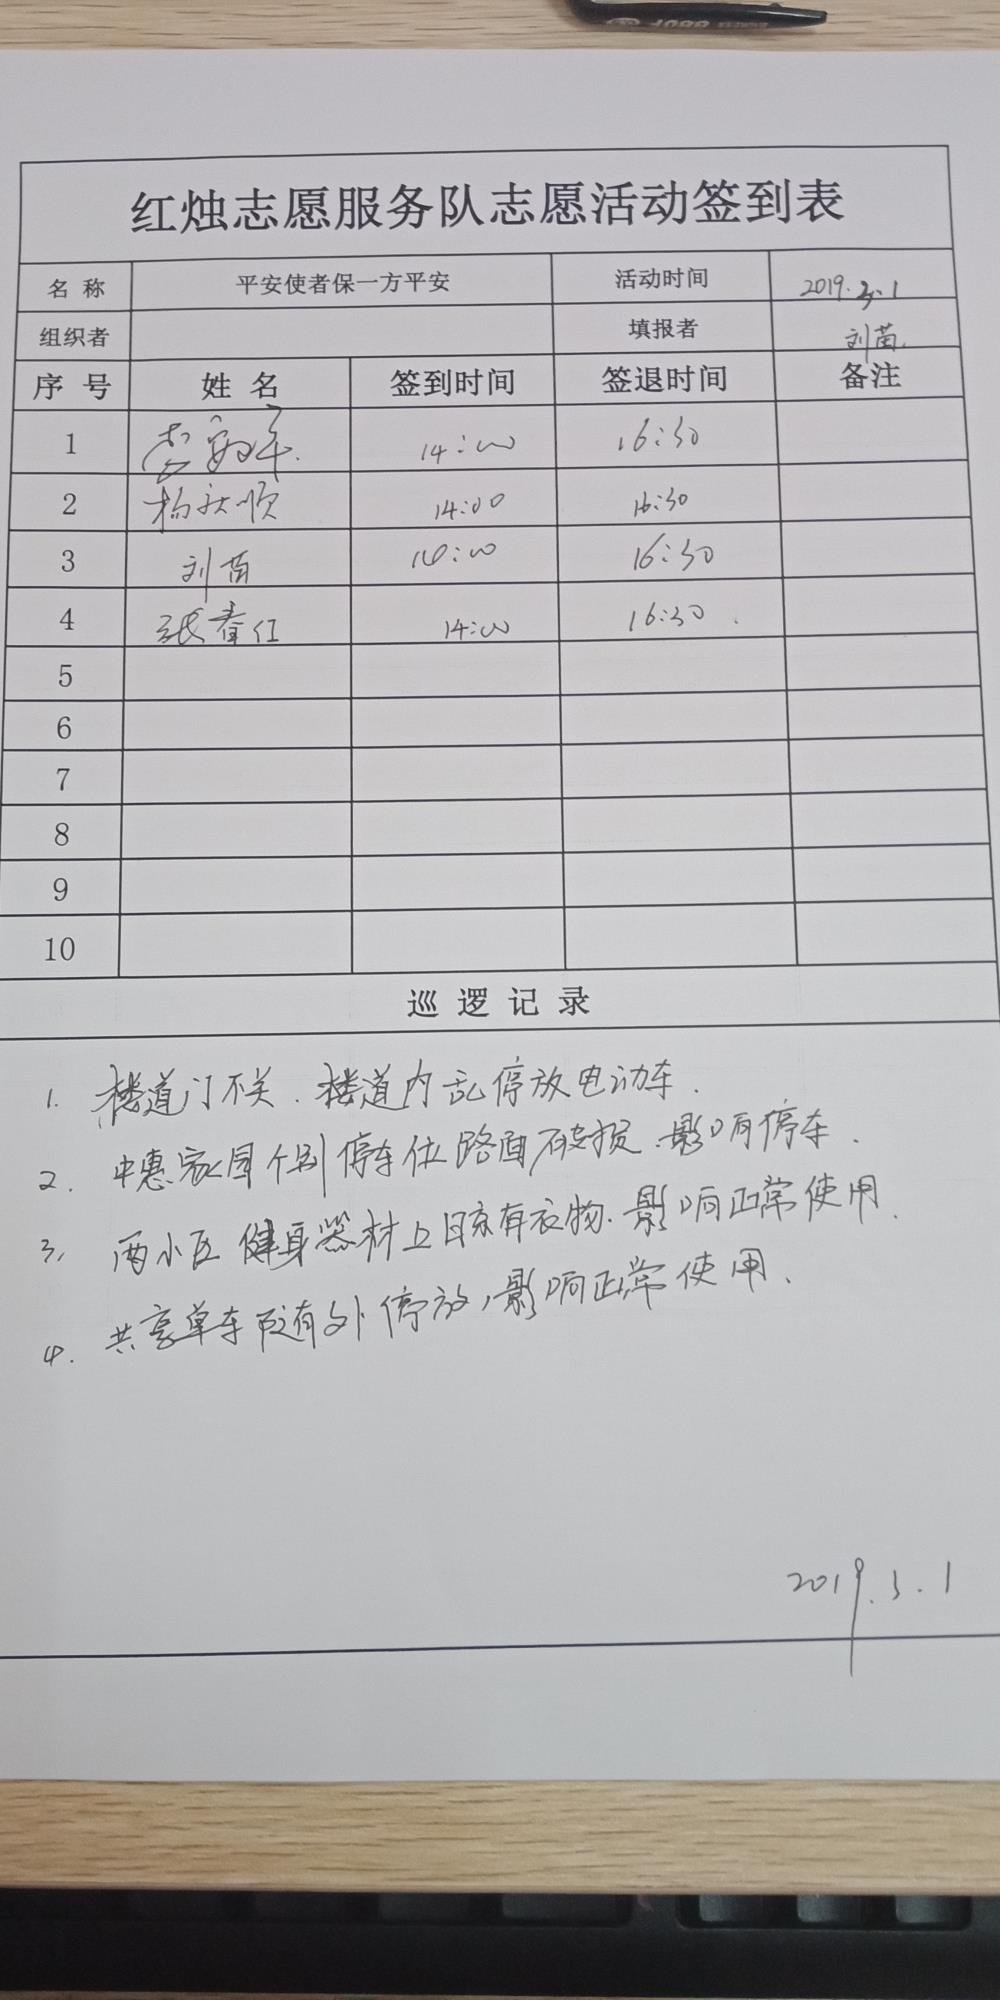 红烛志愿服务队志愿活动签到表
名 称 平安使者保一方平安 活动时间 2019.3.1
组织者 填报者 刘苗
序 号 姓 名 签到时间 签退时间 备注
1 14:00 16:30
2 杨秋顺 14:00 16:30
3 刘苗 14:00 16:30
4 张春红 14:00 16:30
5
6
7
8
9
10
巡 逻 记 录
1. 楼道门不关.楼道内乱停放电动车.
2. 中惠家园个别停车位路面破损.影响停车.
3. 两小区健身器材上日常有衣物.影响正常使用.
4. 共享单车随处停放,影响正常使用.
2019.3.1